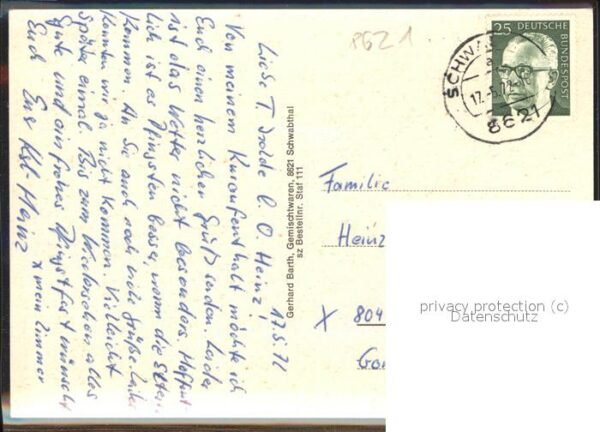 8621
25 DEUTSCHE
BUNDESPOST
SCHWA
17.-5.72
8621
17.5.72
Liebe T. Isolde l. O. Heinz!
Von meinem Kuraufenthalt möchte ich
Euch einen herzlichen Gruß senden. Leider
ist das Wetter nicht besonders. Hoffent-
lich ist es Pfingsten besser, wenn die Eltern
kommen. An Sie auch noch viele Grüße. Leider
konnten wir ja nicht kommen. Vielleicht
später einmal. Bis zum Wiedersehen alles
gute und ein frohes Pfingstfest wünscht
Euch Euer Karl Heinz
x mein Zimmer
Gerhard Barth, Gemischtwaren, 8621 Schwabthal
sz Bestellnr. Staf 111
Familie
Heinz
x 804
Gar
privacy protection (c)
Datenschutz